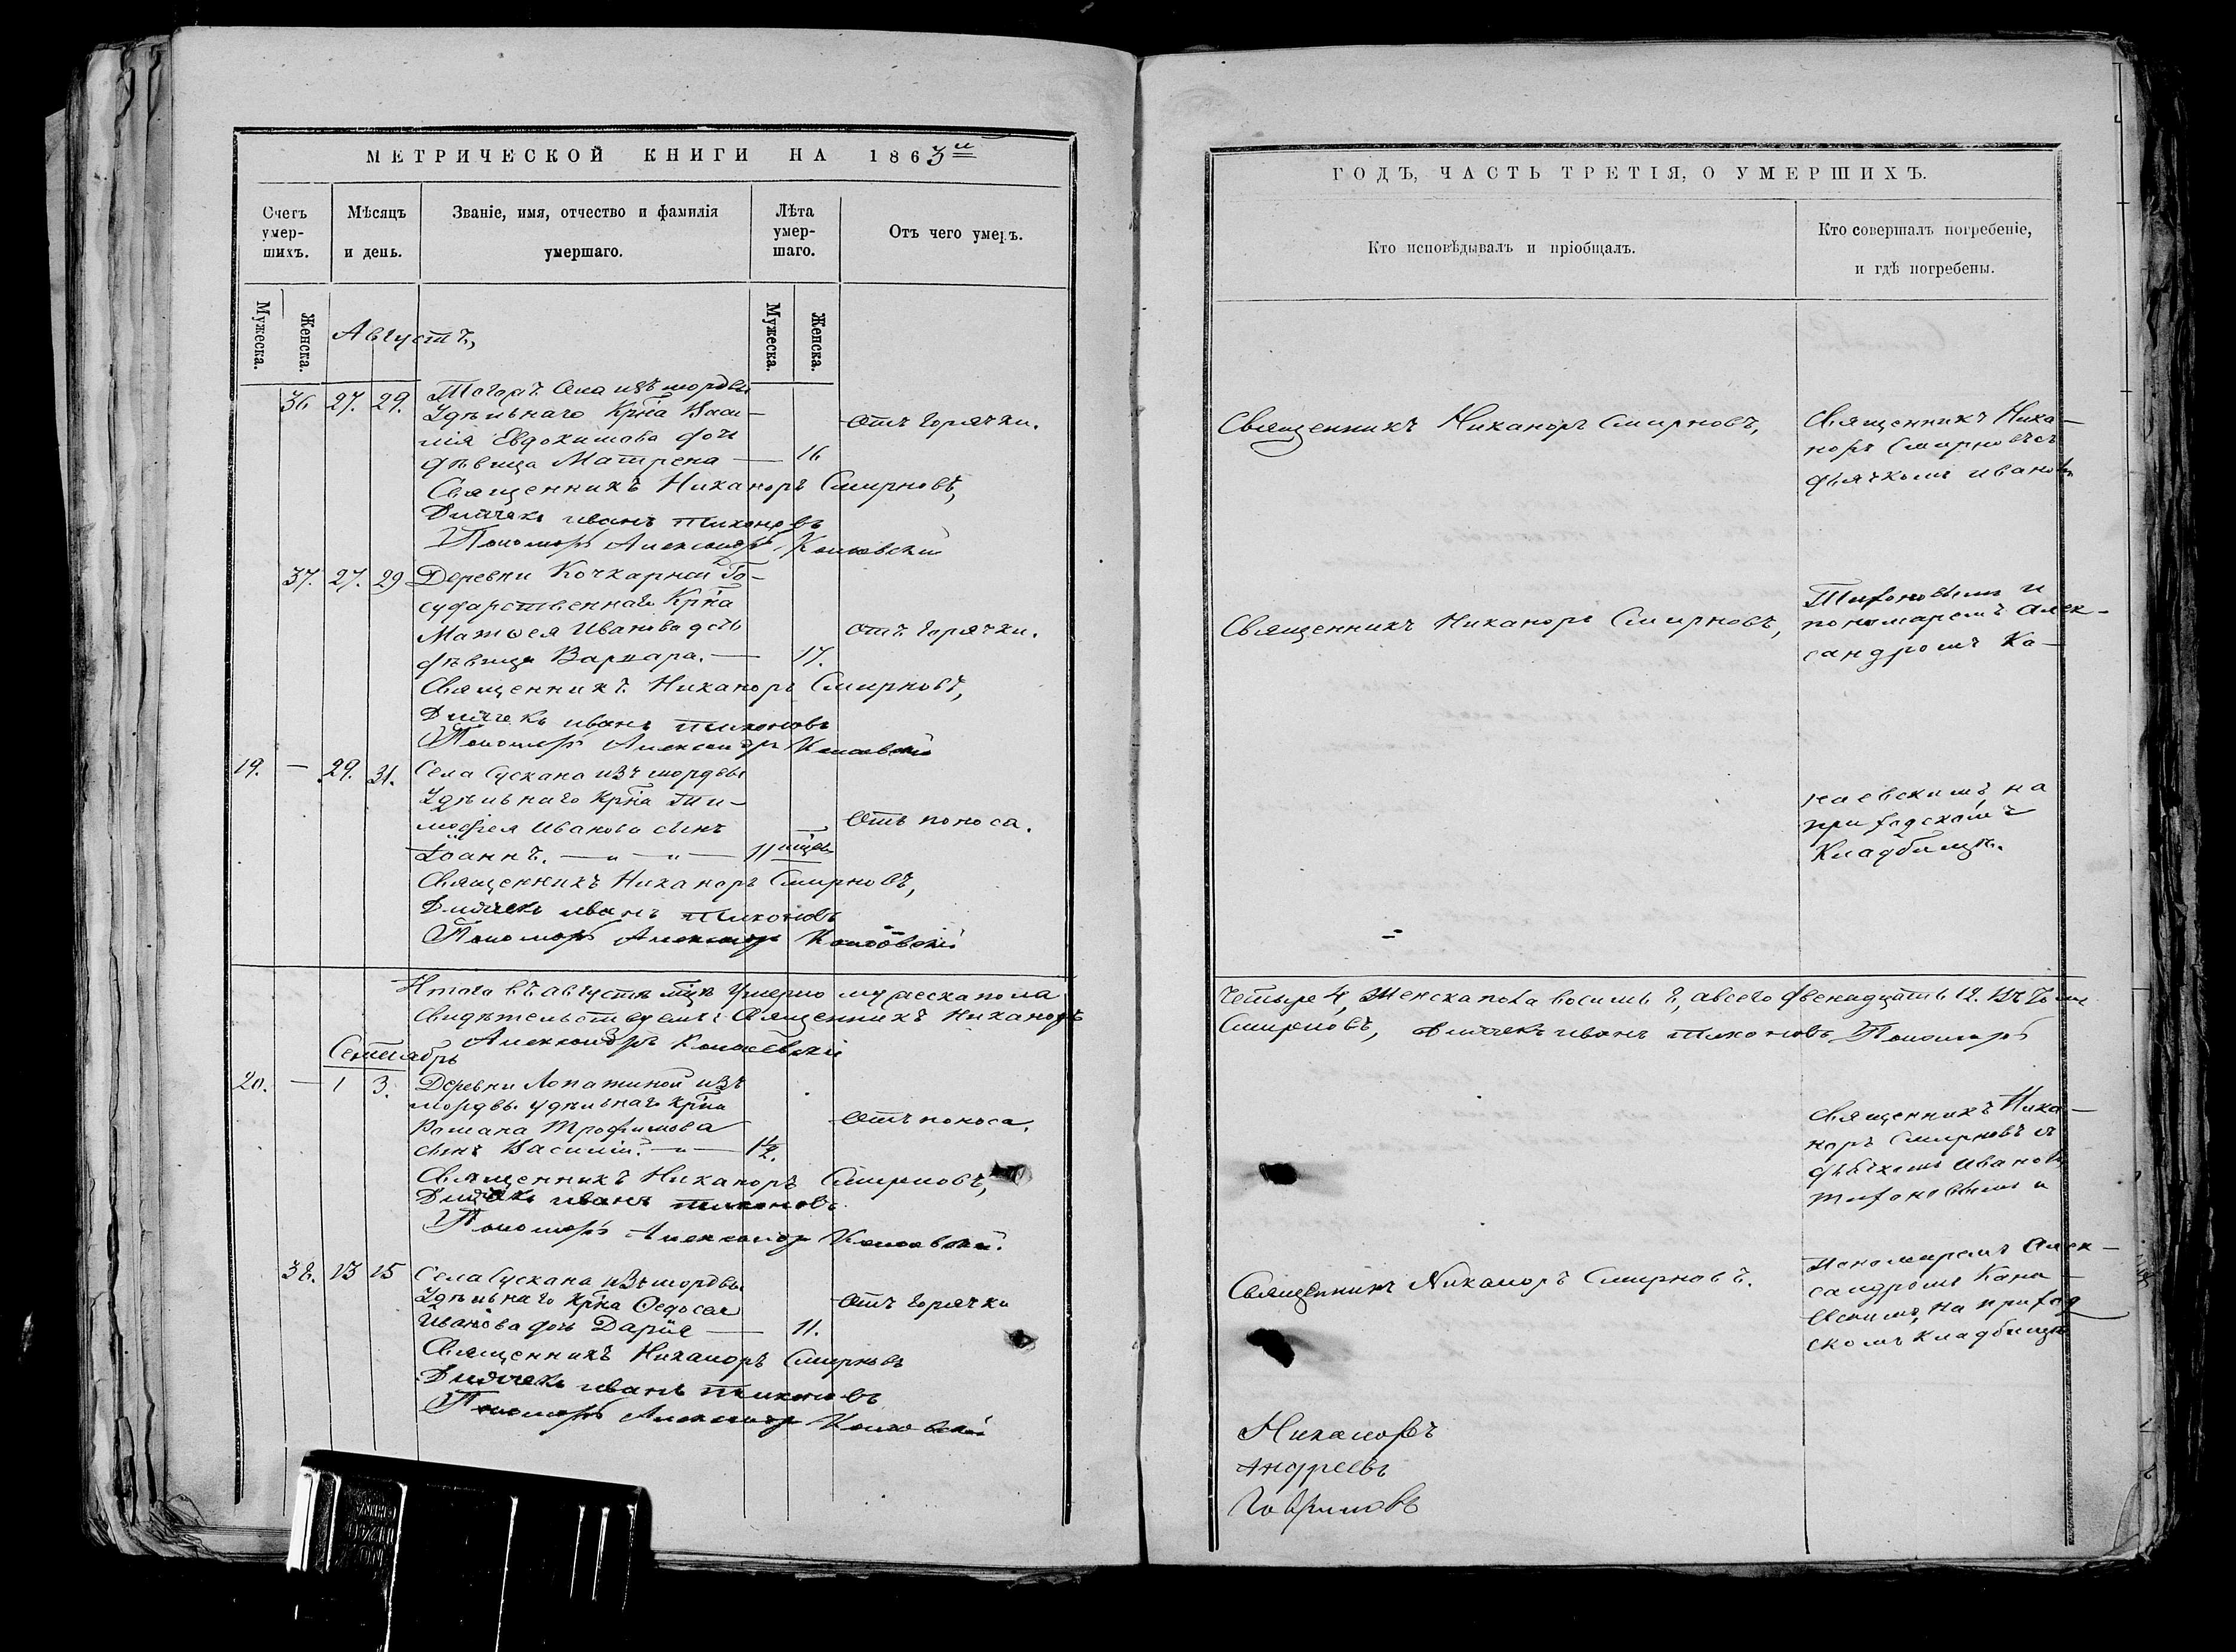 МЕТРИЧЕСКОЙ КНИГИ НА 1863й
Счетъ умер- шихъ.
Мѣсяцъ и день.
Званіе, имя, отчество и фамилія умершаго.
Лѣта умер- шаго.
Отъ чего умеръ.
Мужеска.
Женска.
Мужеска.
Женска.
Августъ,
36 27. 29. Тогожъ Села изъ мордвы
Удѣльнаго Крна Васи-
лія Евдокимова дочь
дѣвица Матрена — 16
Отъ горячки.
Священникъ Никаноръ Смирновъ,
Дьячекъ иванъ тихоновъ
Пономарь Александръ
37. 27. 29 Деревни Кочкарной Го-
сударственнаго Крна
Матѳея Иванова дочь
дѣвица Варвара. — 17.
отъ горячки.
Священникъ Никаноръ Смирновъ,
Дьячекъ иванъ тихоновъ
Пономарь Александръ
19. — 29. 31. Села Сускана изъ мордвы
Удѣльнаго Крна Ти-
моѳея Иванова сынъ
Іоаннъ. — „ — „ — 11 мцев
Отъ поноса.
Священникъ Никаноръ Смирновъ,
Дьячекъ иванъ тихоновъ
Пономарь Александръ
Итого въ августѣ мцѣ умерло мужеска пола
Свидѣтельствуемъ: Священникъ Никаноръ
Александръ
Сентябрь
20. — 1 3. Деревни Лопатиной изъ
мордвы удѣльнаго Крна
Романа Трофимова
сынъ Василій. — „ — 1½.
Отъ поноса.
Священникъ Никаноръ Смирновъ,
Дьячекъ иванъ тихоновъ
Пономарь Александръ
38. 13 15 Села Сускана изъ мордвы
Удѣльнаго Крна Ѳедосея
Иванова дочь Дарія — 11.
Отъ горячки
Священникъ Никаноръ Смирновъ
Дьячекъ иванъ тихоновъ
Пономарь Александръ
ГОДЪ, ЧАСТЬ ТРЕТІЯ, О УМЕРШИХЪ.
Кто исповѣдывалъ и пріобщалъ.
Кто совершалъ погребеніе, и гдѣ погребены.
Священникъ Никаноръ Смирновъ,
Священникъ Ника-
норъ Смирновъ съ
дьячкомъ ивано
Священникъ Никаноръ Смирновъ,
Тихоновымъ и
пономаремъ Алек-
сандромъ Ка-
наевскимъ на
приходскомъ
Кладбищѣ.
Четыре 4, Женска пола восимь 8, а всего двенадцать 12. Въ
Смирновъ, Дьячекъ иванъ тихоновъ Пономарь
Священникъ Ника-
норъ Смирновъ съ
дьячкомъ Ивано
Тихоновымъ и
Священникъ Никаноръ Смирновъ.
Пономаремъ Алек-
сандромъ Кана-
евскимъ, на приход
скомъ кладбищѣ
Никаноръ
Андреевъ
Гавриловъ